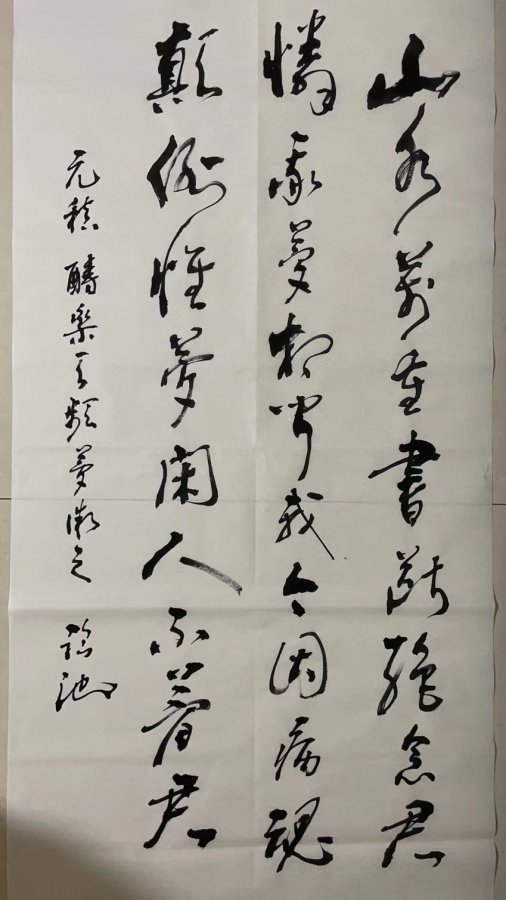 山水萬重書斷絕念君
憐我夢相聞我今因病魂
顛倒惟夢閑人不夢君
元稹 醻樂天頻夢微之 池